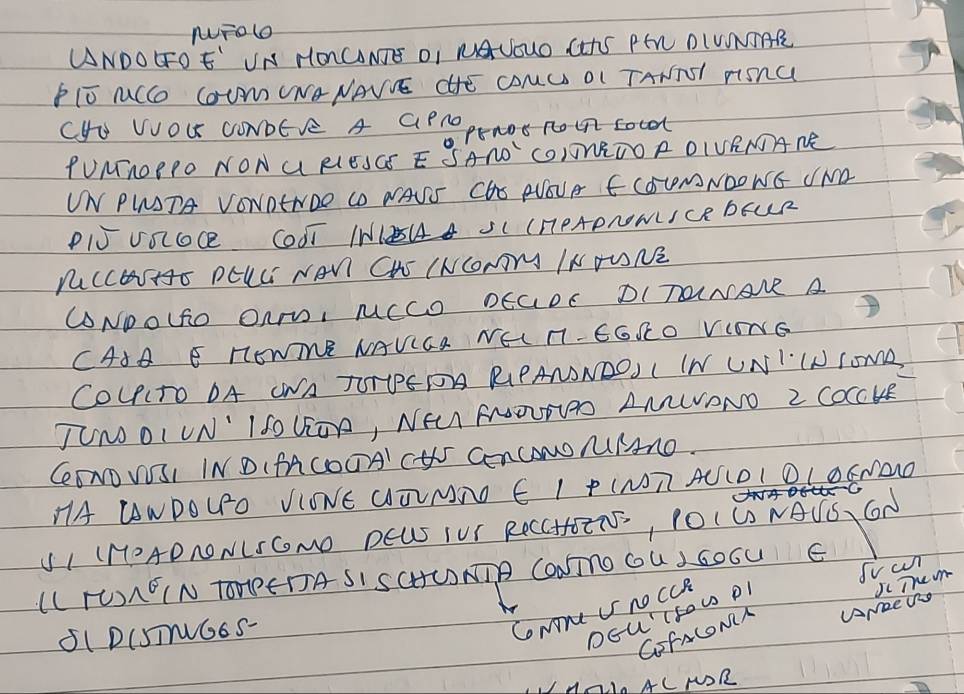 RUFOLO
LANDOLFO E' UN MERCANTE DI RAVELLO CHE PER DIVENTARE
PIÙ RICCO COMPRA UNA NAVE CHE CARICA DI TANTISI MERCI
CHE VUOLE VENDERE A CIPRO
PURTROPPO NON CI RIESCE E O PERDE SARO' COSTRETTO A DIVENTARE
UN PIRATA VENDENDO LA NAVE CHE AVEVA E COMPRANDONE UNA
PIÙ VELOCE COSÌ INIZIA A SI IMPADRONISCE DELLE
RICCHEZZE DELLE NAVI CHE INCONTRA IN MARE
LANDOLFO ORMAI RICCO DECIDE DI TORNARE A
CASA E MENTRE NAVIGA NEL M. EGEO VIENE
COLPITO DA UNA TEMPESTA RIPARANDOSI IN UN'INSENA
TURA DI UN' ISOLETTA, NELL ARRIVANO 2 COCCHE
GENOVESI IN DIFFICOLTA' CHE CERCANO RIPARO.
MA LANDOLFO VIENE CATTURATO E I PIRATI AVIDI DI DENARO
SI IMPADRONISCONO DELLE SUE RICCHEZZE, POI LA NAVE CON
IL MARE IN TEMPESTA SI SCHIANTA CONTRO GLI SCOGLI E
SI DISTRUGGE
CONTRO LE ROCCE
DELL'ISOLA DI
CEFALONIA
SU CUI
SI TROVA
LANDOLFO
AL MAR